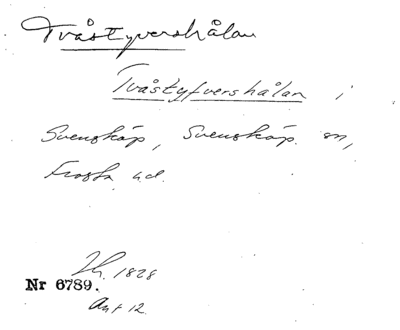 Tvåstyvershålan
Tvåstyfvershålan i
Svensköp, Svensköp sn,
Frosta hd.
Lh. 1828
Nr 6789.
Akt 12.